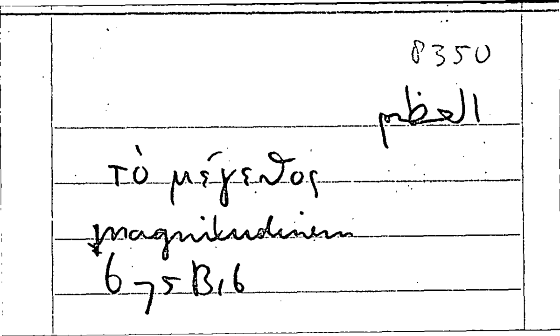 8350
العظم
τὸ μέγεθος
magnitudinem
675 B, 6